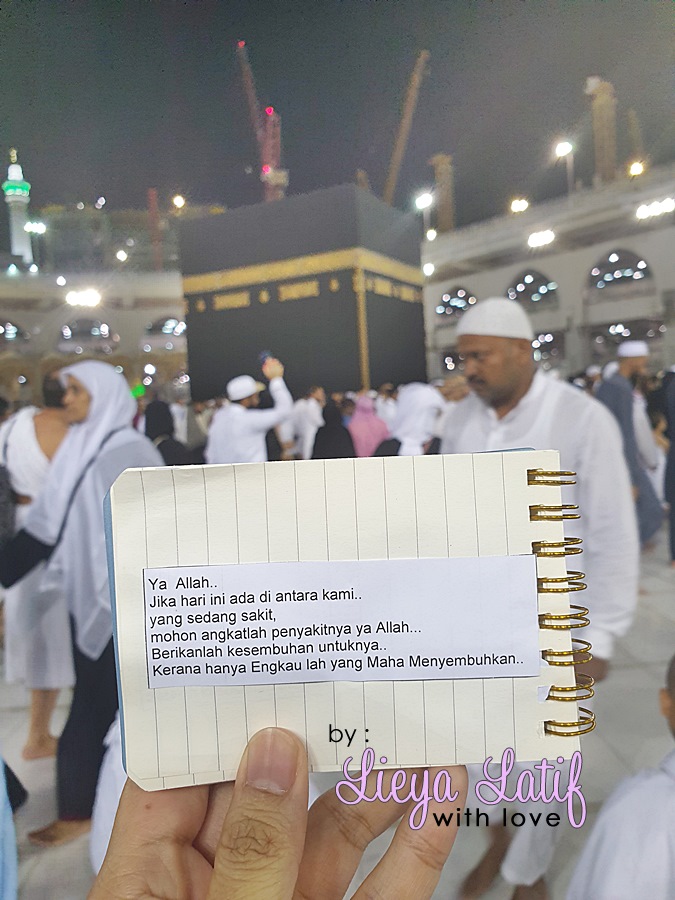 Ya Allah..
Jika hari ini ada di antara kami..
yang sedang sakit,
mohon angkatlah penyakitnya ya Allah...
Berikanlah kesembuhan untuknya..
Kerana hanya Engkau lah yang Maha Menyembuhkan..
by :
Lieya Latif
with love